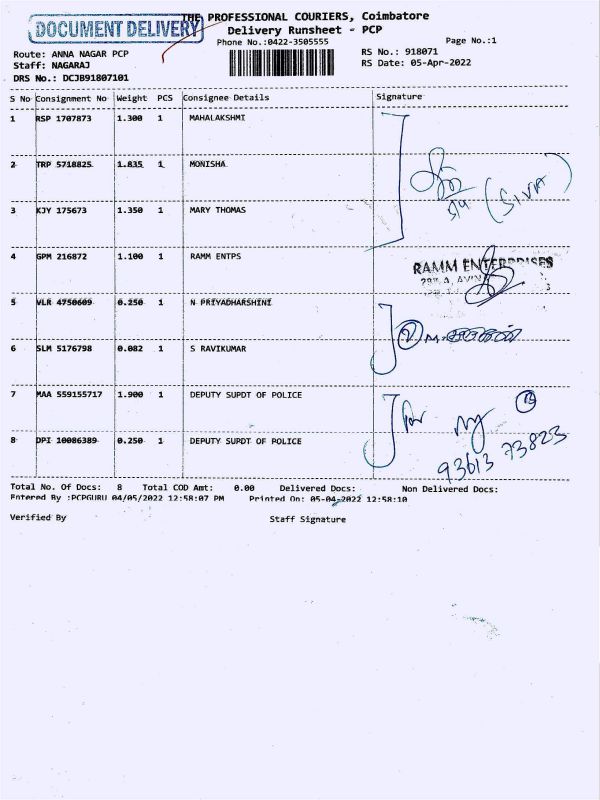 DOCUMENT DELIVERY
THE PROFESSIONAL COURIERS, Coimbatore
Delivery Runsheet - PCP
Phone No.:0422-3505555 Page No.:1
Route: ANNA NAGAR PCP RS No.: 918071
Staff: NAGARAJ RS Date: 05-Apr-2022
DRS No.: DCJB91807101
S No Consignment No Weight PCS Consignee Details Signature
1 RSP 1707873 1.300 1 MAHALAKSHMI
2 TRP 5718825 1.835 1 MONISHA
(SIVA)
3 KJY 175673 1.350 1 MARY THOMAS
4 GPM 216872 1.100 1 RAMM ENTPS
RAMM ENTERPRISES
5 VLR 4750609 0.250 1 N PRIYADHARSHINI
6 SLM 5176798 0.082 1 S RAVIKUMAR
7 MAA 559155717 1.900 1 DEPUTY SUPDT OF POLICE
8 DPI 10086389 0.250 1 DEPUTY SUPDT OF POLICE
93613 73823
Total No. Of Docs: 8 Total COD Amt: 0.00 Delivered Docs: Non Delivered Docs:
Entered By :PCPGURU 04/05/2022 12:58:07 PM Printed On: 05-04-2022 12:58:10
Verified By Staff Signature